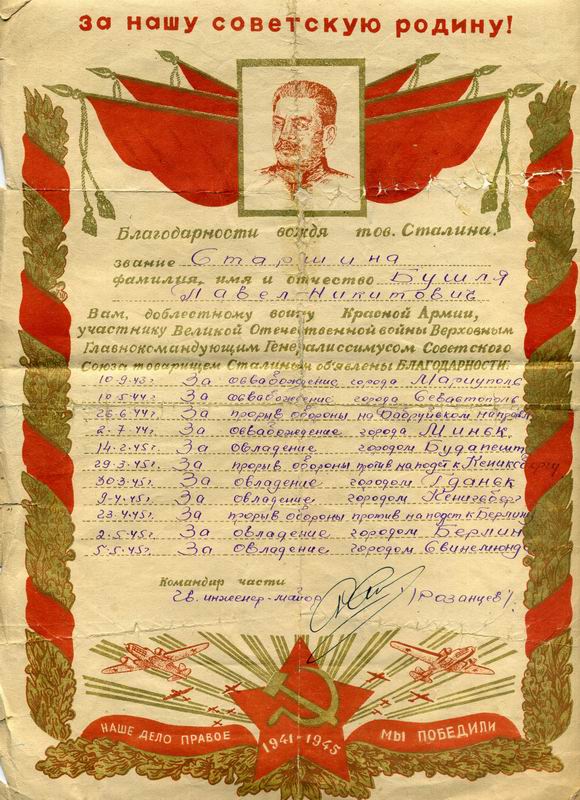 За нашу советскую родину!
Благодарности вождя тов. Сталина.
звание Старшина
фамилия, имя и отчество Бушля
Павел Никитович
Вам, доблестному воину Красной Армии,
участнику Великой Отечественной войны Верховным
Главнокомандующим Генералиссимусом Советского
Союза товарищем Сталиным объявлены БЛАГОДАРНОСТИ:
10-9-43г. За освабождение города Мариуполь
10-5-44г За освабождение города Севастополь
26-6-44г. За прорыв обороны на Бобруйском направл.
2-7-44г. За освабождение города Минск.
14-2-45г. За овладение городом Будапешт
29-3-45г. За прорыв обороны против на подст к Кениксбергу
30-3-45г. За овладение городом Гданьск
9-4-45г. За овладение городом Кенигсберг
23-4-45г. За прорыв обороны против на подст к Берлину
2-5-45г. За овладение городом Берлин
5-5-45г. За овладение городом Свинемюнде
Командир части
Гв. инженер-майор (Розанцев).
НАШЕ ДЕЛО ПРАВОЕ 1941-1945 МЫ ПОБЕДИЛИ